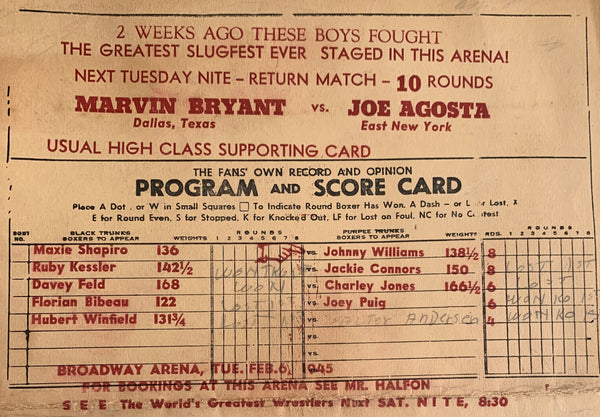 2 WEEKS AGO THESE BOYS FOUGHT
THE GREATEST SLUGFEST EVER STAGED IN THIS ARENA!
NEXT TUESDAY NITE – RETURN MATCH – 10 ROUNDS
MARVIN BRYANT vs. JOE AGOSTA
Dallas, Texas East New York
USUAL HIGH CLASS SUPPORTING CARD
THE FANS' OWN RECORD AND OPINION
PROGRAM AND SCORE CARD
Place A Dot . or W in Small Squares □ To Indicate Round Boxer Has Won. A Dash – or L for Lost,
E for Round Even, S for Stopped, K for Knocked Out, LF for Lost on Foul, NC for No Contest.
BOUT NO. BLACK TRUNKS BOXERS TO APPEAR WEIGHTS ROUNDS 1 2 3 4 5 6 7 8 PURPLE TRUNKS BOXERS TO APPEAR WEIGHTS RDS. ROUNDS 1 2 3 4 5 6 7 8
Maxie Shapiro 136 vs. Johnny Williams 138½ 8
Ruby Kessler 142½ WON vs. Jackie Connors 150 8 LOST 1ST
Davey Feld 168 WON vs. Charley Jones 166½ 6 LOST
Florian Bibeau 122 LOST 1ST vs. Joey Puig 6 WON KO 1S
Hubert Winfield 131¾ LOST vs. Walter Anderson 4 WON KO
BROADWAY ARENA, TUE. FEB. 6, 1945
FOR BOOKINGS AT THIS ARENA SEE MR. HALFON
SEE The World's Greatest Wrestlers Next SAT. NITE, 8:30